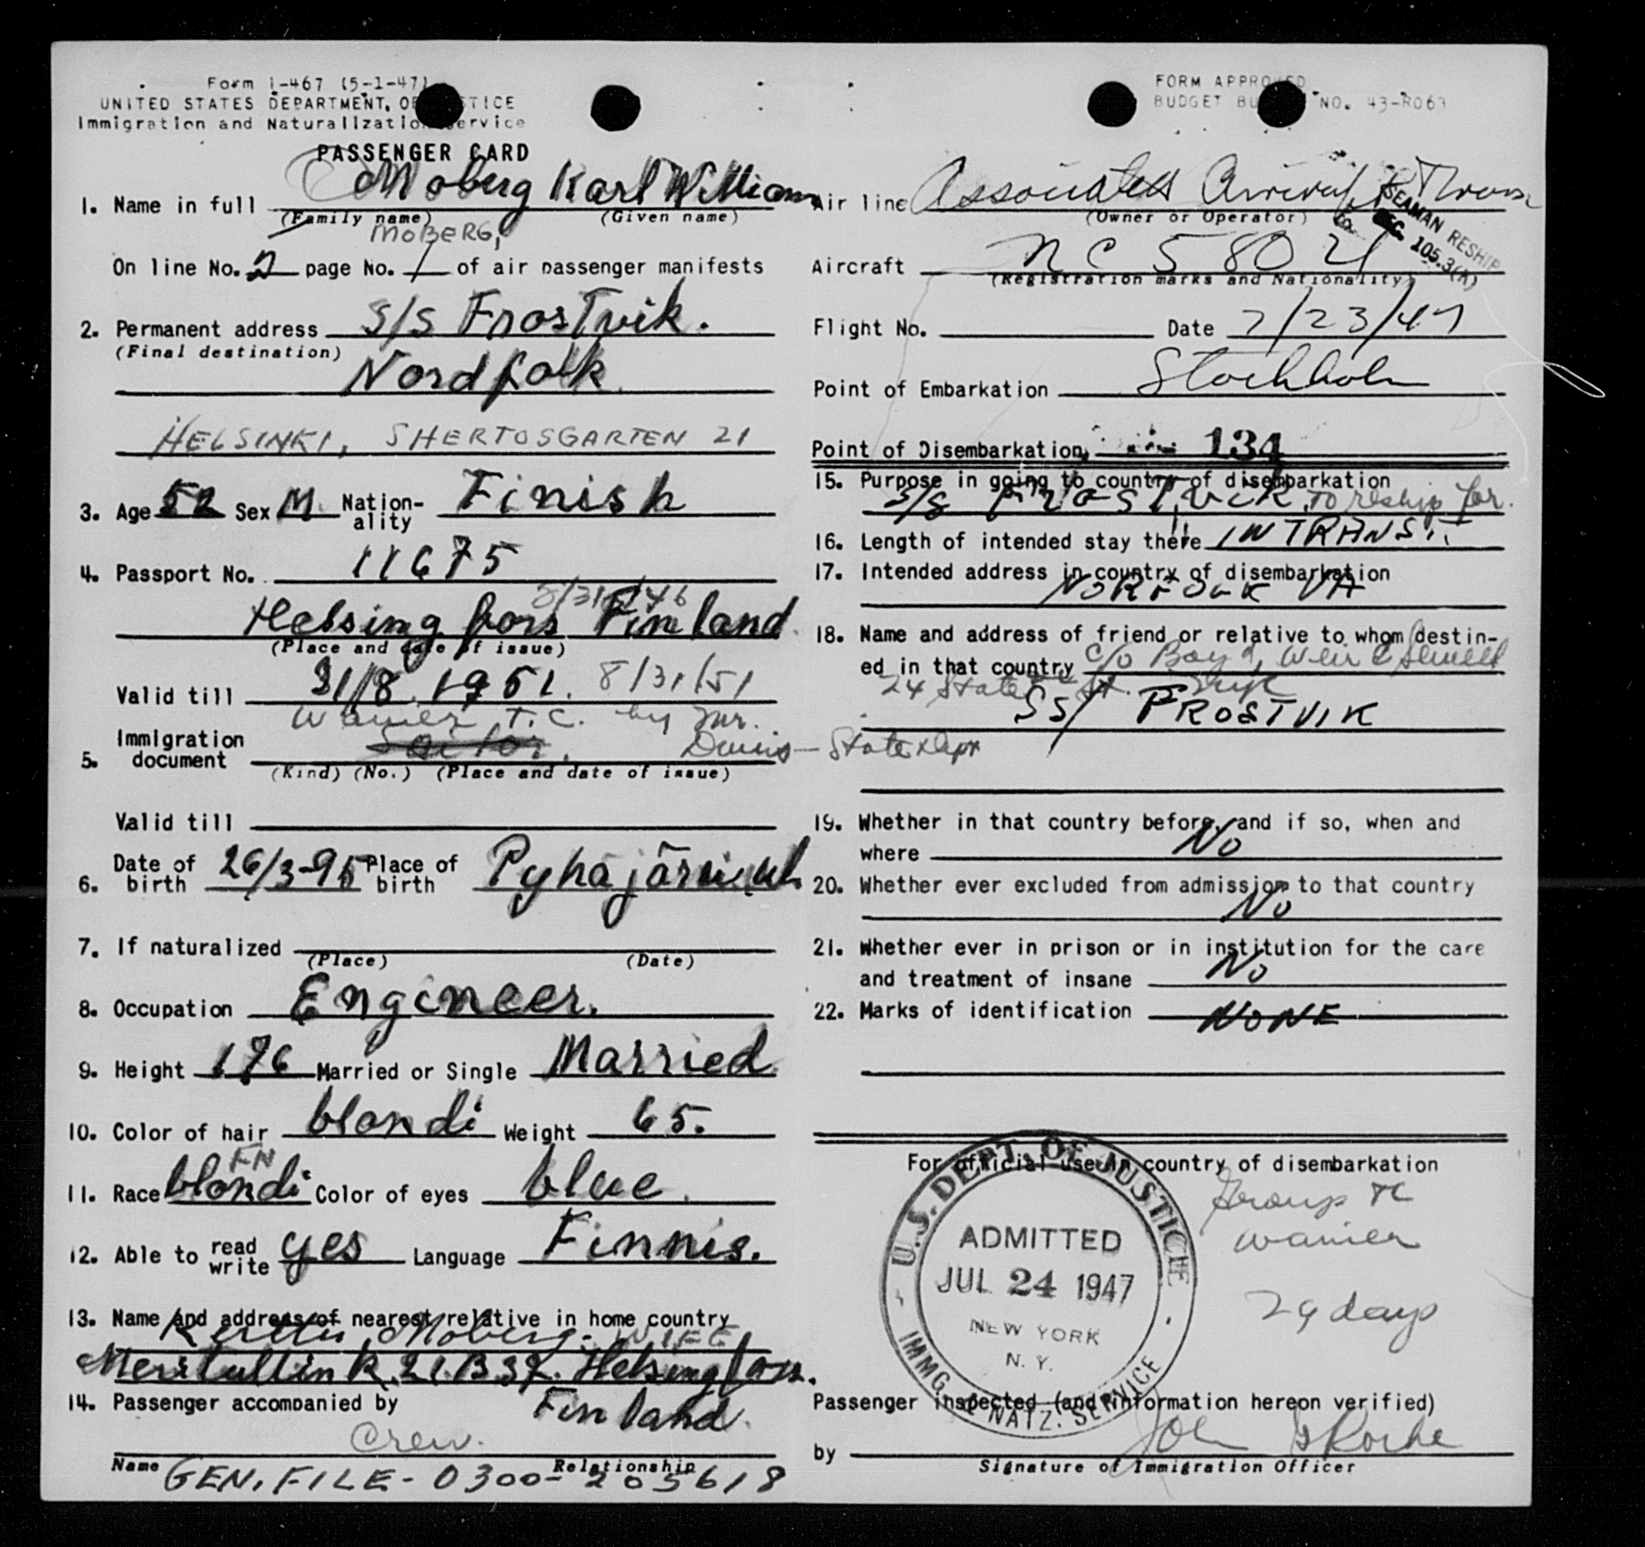 Form I-467 (5-1-47)
UNITED STATES DEPARTMENT OF JUSTICE
Immigration and Naturalization Service
PASSENGER CARD
1. Name in full Moberg Karl William
(Family name) (Given name)
MOBERG,
On line No. 2 page No. 1 of air passenger manifests
2. Permanent address S/S Frostvik.
(Final destination)
Nordfolk
HELSINKI, SHERTOSGARTEN 21
3. Age 52 Sex M Nation-ality Finish
4. Passport No. 11675
8/31/46
Helsingfors Finland
(Place and date of issue)
Valid till 31/8 1951. 8/31/51
Waiver T.C. by Mr.
5. Immigration document Davis - State Dept
(Kind) (No.) (Place and date of issue)
Valid till
6. Date of birth 26/3-95 Place of birth
7. If naturalized
(Place) (Date)
8. Occupation Engineer.
9. Height 176 Married or Single Married
10. Color of hair blondi Weight 65.
FN
11. Race blondi Color of eyes blue.
12. Able to read write yes Language Finnis.
13. Name and address of nearest relative in home country
Kerttu Moberg. WIFE
Meritullink. 21. B 37. Helsingfors.
14. Passenger accompanied by Finland.
Crew.
Name Relationship
GEN. FILE - 0300-205618
FORM APPROVED
BUDGET BUREAU NO. 43-R067
Air line Associated
(Owner or Operator)
SEAMAN RESHIP
SEC. 105.3(A)
Aircraft NC 58021
(Registration marks and Nationality)
Flight No. Date 7/23/47
Point of Embarkation Stockholm
Point of Disembarkation 134
15. Purpose in going to country of disembarkation
S/S FROSTVIK, To reship for.
16. Length of intended stay there IN TRANSIT
17. Intended address in country of disembarkation
NORFOLK VA
18. Name and address of friend or relative to whom destin-
ed in that country c/o Boyd, Weir & Sewell
24 State St. NYC
SS/ FROSTVIK
19. Whether in that country before, and if so, when and
where No
20. Whether ever excluded from admission to that country
No
21. Whether ever in prison or in institution for the care
and treatment of insane No
22. Marks of identification NONE
For official use in country of disembarkation
U.S. DEPT. OF JUSTICE
ADMITTED
JUL 24 1947
NEW YORK
N. Y.
IMMG. & NATZ. SERVICE
Group TC
Waiver
29 days
Passenger inspected (and information hereon verified)
by John
Signature of Immigration Officer